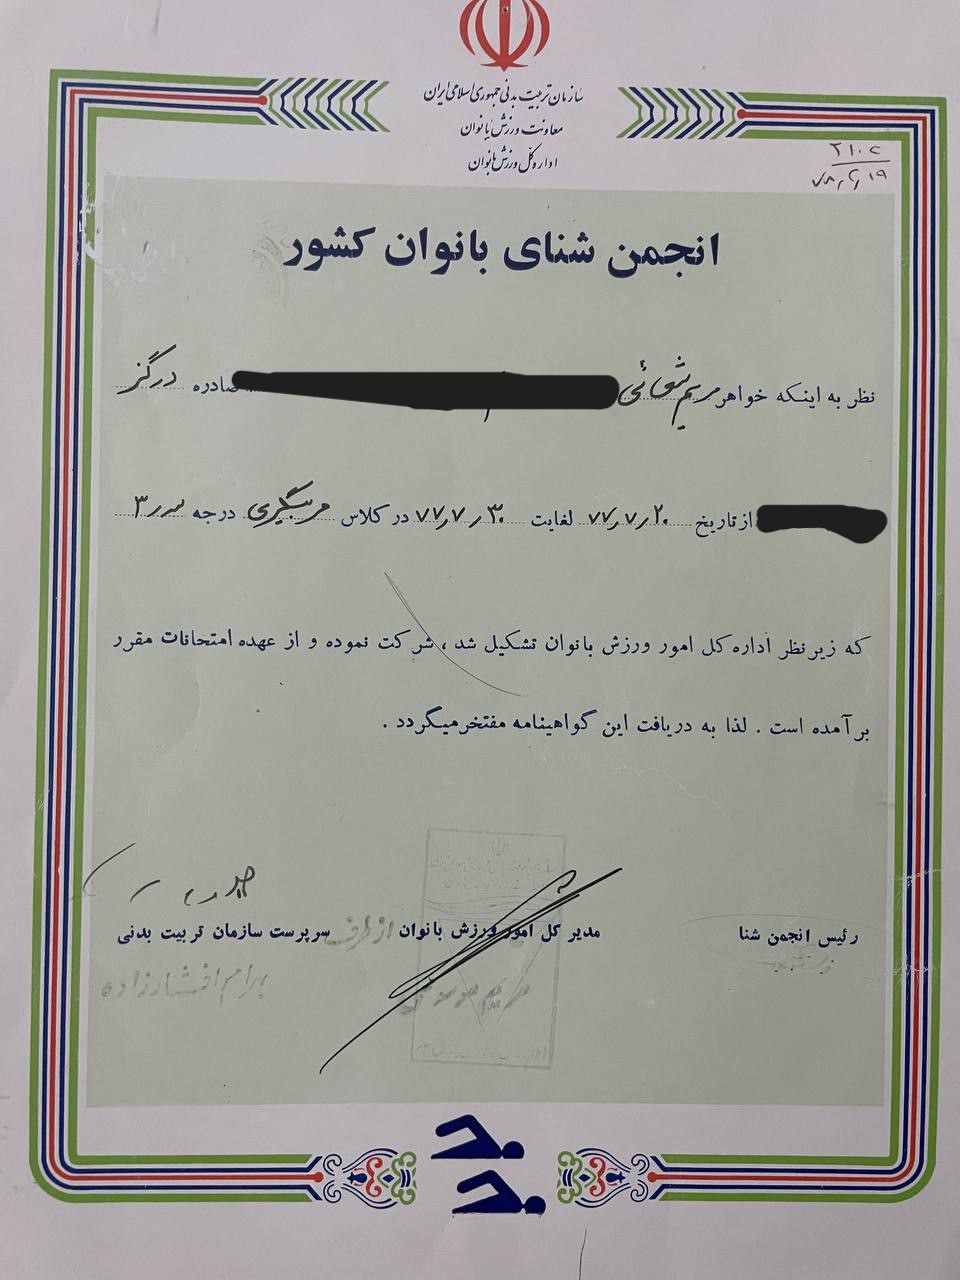 سازمان تربیت بدنی جمهوری اسلامی ایران
معاونت ورزش بانوان
اداره کل ورزش بانوان
۲۱۰۲
۷۸٫۲٫۱۹
انجمن شنای بانوان کشور
نظر به اینکه خواهر مریم صادره درگز
از تاریخ ۷۷٫۷٫۲۰ لغایت ۷۷٫۷٫۳۰ در کلاس مربیگری درجه ۳
که زیر نظر اداره کل امور ورزش بانوان تشکیل شد ، شرکت نموده و از عهده امتحانات مقرر
بر آمده است . لذا به دریافت این گواهینامه مفتخر میگردد .
رئیس انجمن شنا
مدیر کل امور ورزش بانوان
از طرف سرپرست سازمان تربیت بدنی
بهرام افشارزاده